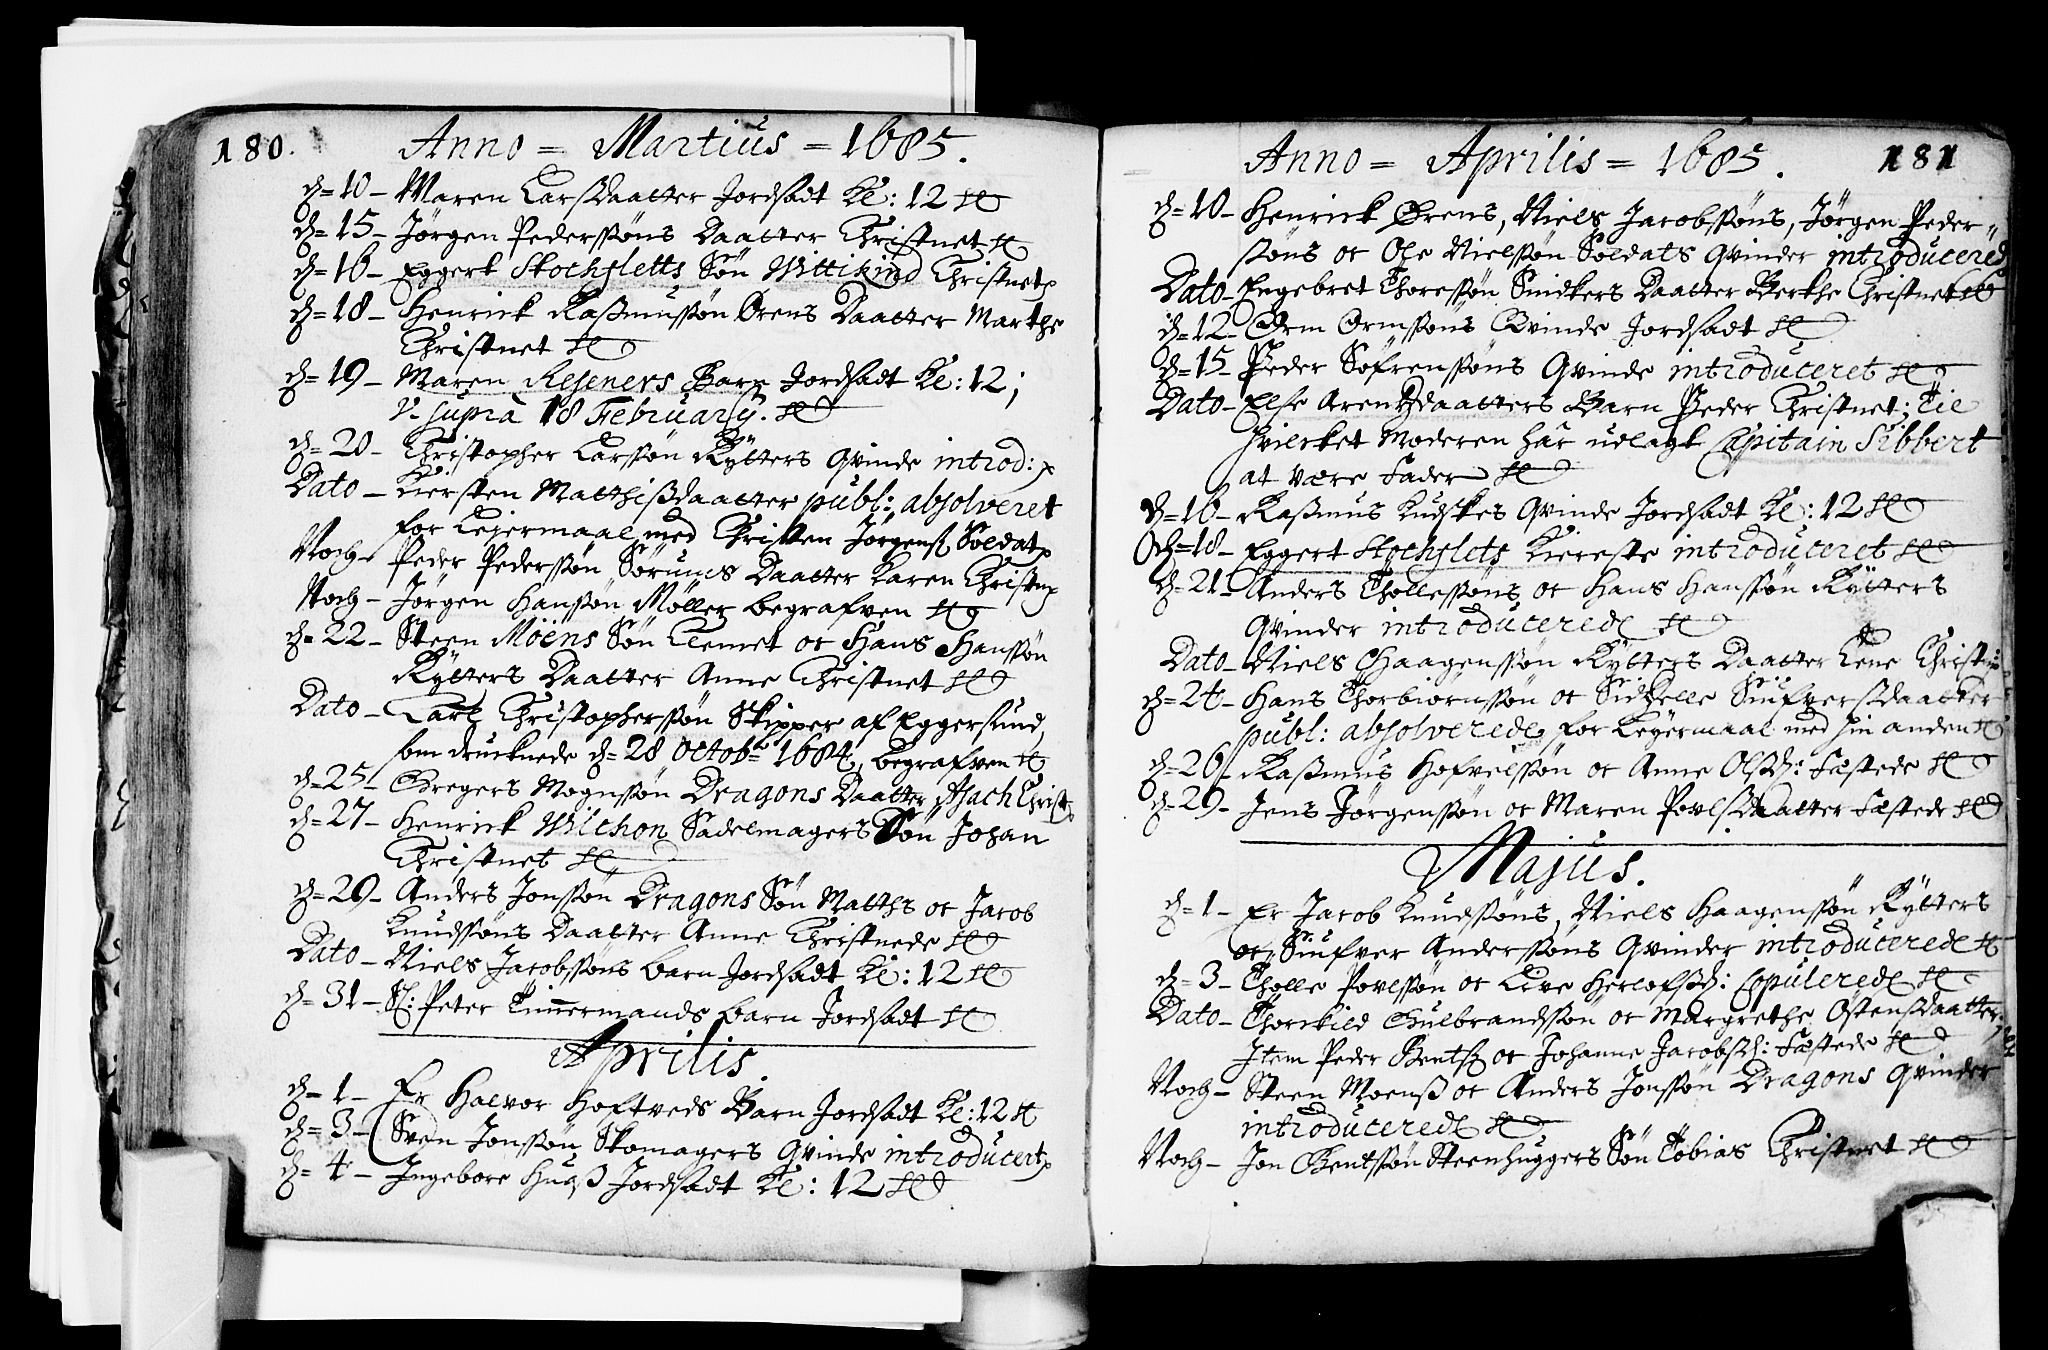 180.
Anno = Martius = 1685.
d= 10 - Maren Larsdaatter Jordsadt Kl: 12
d= 15 - Jörgen Pederssöns Daatter Christnet
d= 16 - Eggert Stochfletts Sön Wittikind Christnet
d= 18 - Henrick Rasmussön Örens Daatter Marthe
Christnet
d= 19 - Maren Barn Jordsadt Kl: 12;
v. supra 18 February.
d= 20 - Christopher Larssön Rytters Qvinde introd:
Dato - Kiersten Matthisdaatter publ: absolveret
for Leiermaal med Christen Jörgens Soldat
Noch - Peder Pederssön Daatter Karen Christn
Noch - Jörgen Hanssön Möller begrafven
d= 22 - Steen Möens Sön Clemet oc Hans Hanssön
Rytters Daatter Anne Christnet
Dato - Carl Christopherssön Skipper af Eggersund,
som drucknede d= 28 Octob: 1684, begrafven
d= 25 - Gregers Mognssön Dragons Daatter Christ
d= 27 - Henrick Wilchon Sadelmagers Sön Johan
Christnet
d= 29 - Anders Jonssön Dragons Sön Matths oc Jacob
Knudssöns Daatter Anne Christnede
Dato - Niels Jacobssöns barn Jordsadt Kl: 12
d= 31 - Sl: Peter Timmermands barn Jordsadt
Aprilis.
d= 1 - Er Halvor Hoftveds Barn Jordsadt Kl: 12
d= 3 - Sven Jonssön Skomagers Qvinde introducert
d= 4 - Ingebore Jordsadt Kl: 12
Anno = Aprilis = 1685.
181
d= 10 - Henrick Örens, Niels Jacobssöns, Jörgen Peder=
ssöns oc Ole Nielssön Soldats Qvinder introducered
Dato - Engebret Thoressön Snidkers Daatter Berthe Christnet
d= 12 - Orm Ormssöns Qvinde Jordsadt
d= 15 - Peder Söfrenssöns Qvinde introduceret
Dato - Else Arentzdaatters Barn Peder Christnet; til
hvilcket Moderen har udlagt Capitain Sibbert
at være Fader
d= 16 - Rasmus Kudskes Qvinde Jordsadt Kl: 12
d= 18 - Eggert Stochflets Kiereste introduceret
d= 21 - Anders Thollessöns oc Hans Hanssön Rytters
Qvinder introducerede
Dato - Niels Haagenssön Rytters Daatter Lene Christn
d= 24 - Hans Thorbiörnssön oc Sidzelle Siufversdaatter
publ: absolverede for Leyermaal med hin anden
d= 26 - Rasmus Hofvelssön oc Anne Olsd: Fæstede
d= 29 - Jens Jörgenssön oc Maren Povlsdaatter Fæstede
Majus.
d= 1 - Er Jacob Knudssöns, Niels Haagenssön Rytters
oc Siufver Anderssöns Qvinder introducerede
d= 3 - Tholle Povlssön oc Live Herlofsd: Copulerede
Dato - Thorkild Gulbrandssön oc Margrethe Östensdaatter
Item Peder Bents oc Johanne Jacobsd: Fæstede
Noch - Steen Moens oc Anders Jonssön Dragons Qvinder
introducerede
Noch - Jon Bentssön Steenhuggers Sön Tobias Christnet